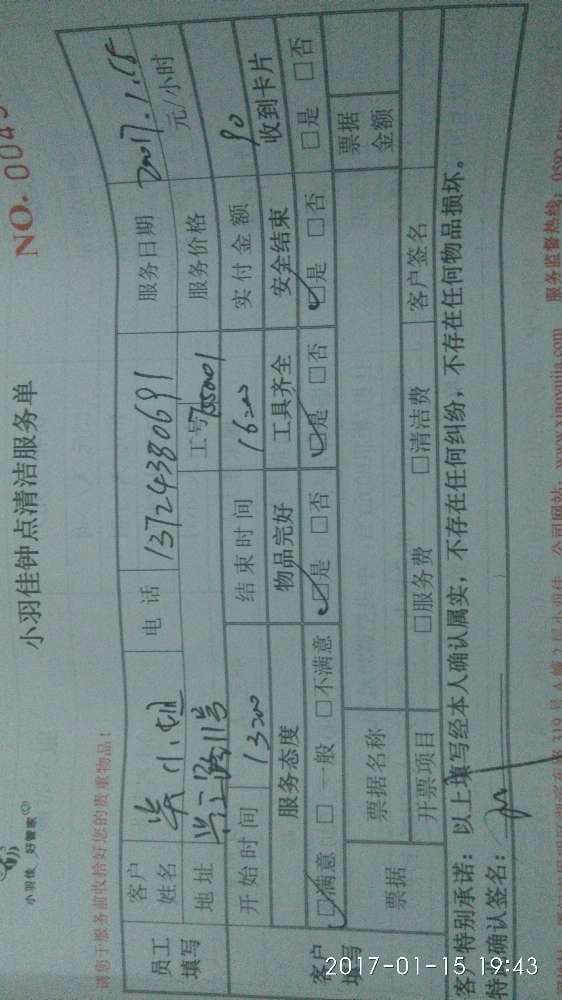 小羽佳 好管家
小羽佳钟点清洁服务单
NO. 004
请您于服务前收拾好您的贵重物品!
员工填写 客户姓名 小姐 电话 13724380691 服务日期 2017.1.15
地址 工号 服务价格 元/小时
开始时间 1300 结束时间 1600 实付金额 90
客户填写 服务态度 物品完好 工具齐全 安全结束 收到卡片
☑满意 □一般 □不满意 ☑是 □否 ☑是 □否 ☑是 □否 □是 □否
票据 票据名称 票据金额
开票项目 □服务费 □清洁费 客户签名
客户特别承诺:以上填写经本人确认属实,不存在任何纠纷,不存在任何物品损坏。
特此确认签名:
公司网站:www.xiaoyujia.com 服务监督热线:
2017-01-15 19:43